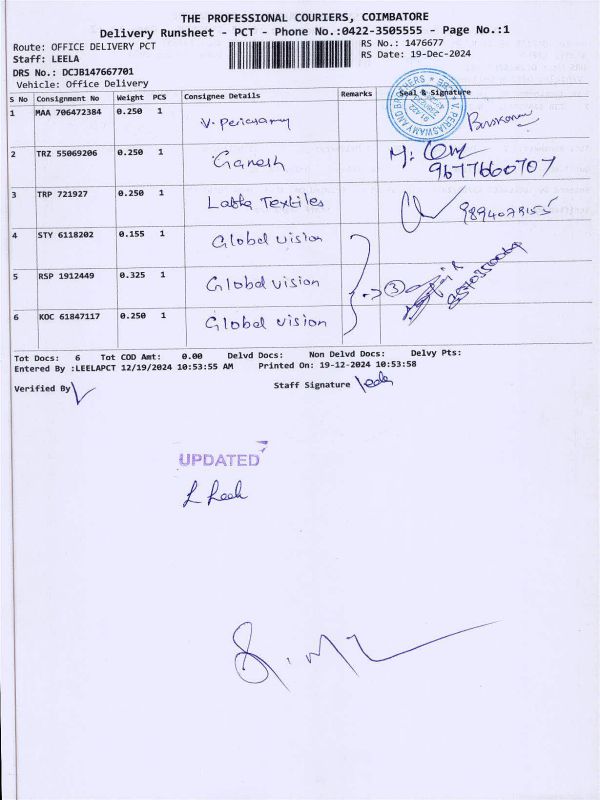 THE PROFESSIONAL COURIERS, COIMBATORE
Delivery Runsheet - PCT - Phone No.:0422-3505555 - Page No.:1
Route: OFFICE DELIVERY PCT RS No.: 1476677
Staff: LEELA RS Date: 19-Dec-2024
DRS No.: DCJB147667701
Vehicle: Office Delivery
S No Consignment No Weight PCS Consignee Details Remarks Seal & Signature
1 MAA 706472384 0.250 1 V. Periasamy
2 TRZ 55069206 0.250 1 Ganesh 9677660707
3 TRP 721927 0.250 1 Textiles
4 STY 6118202 0.155 1 Global vision
5 RSP 1912449 0.325 1 Global vision 3
6 KOC 61847117 0.250 1 Global vision
Tot Docs: 6 Tot COD Amt: 0.00 Delvd Docs: Non Delvd Docs: Delvy Pts:
Entered By :LEELAPCT 12/19/2024 10:53:55 AM Printed On: 19-12-2024 10:53:58
Verified By Staff Signature
UPDATED